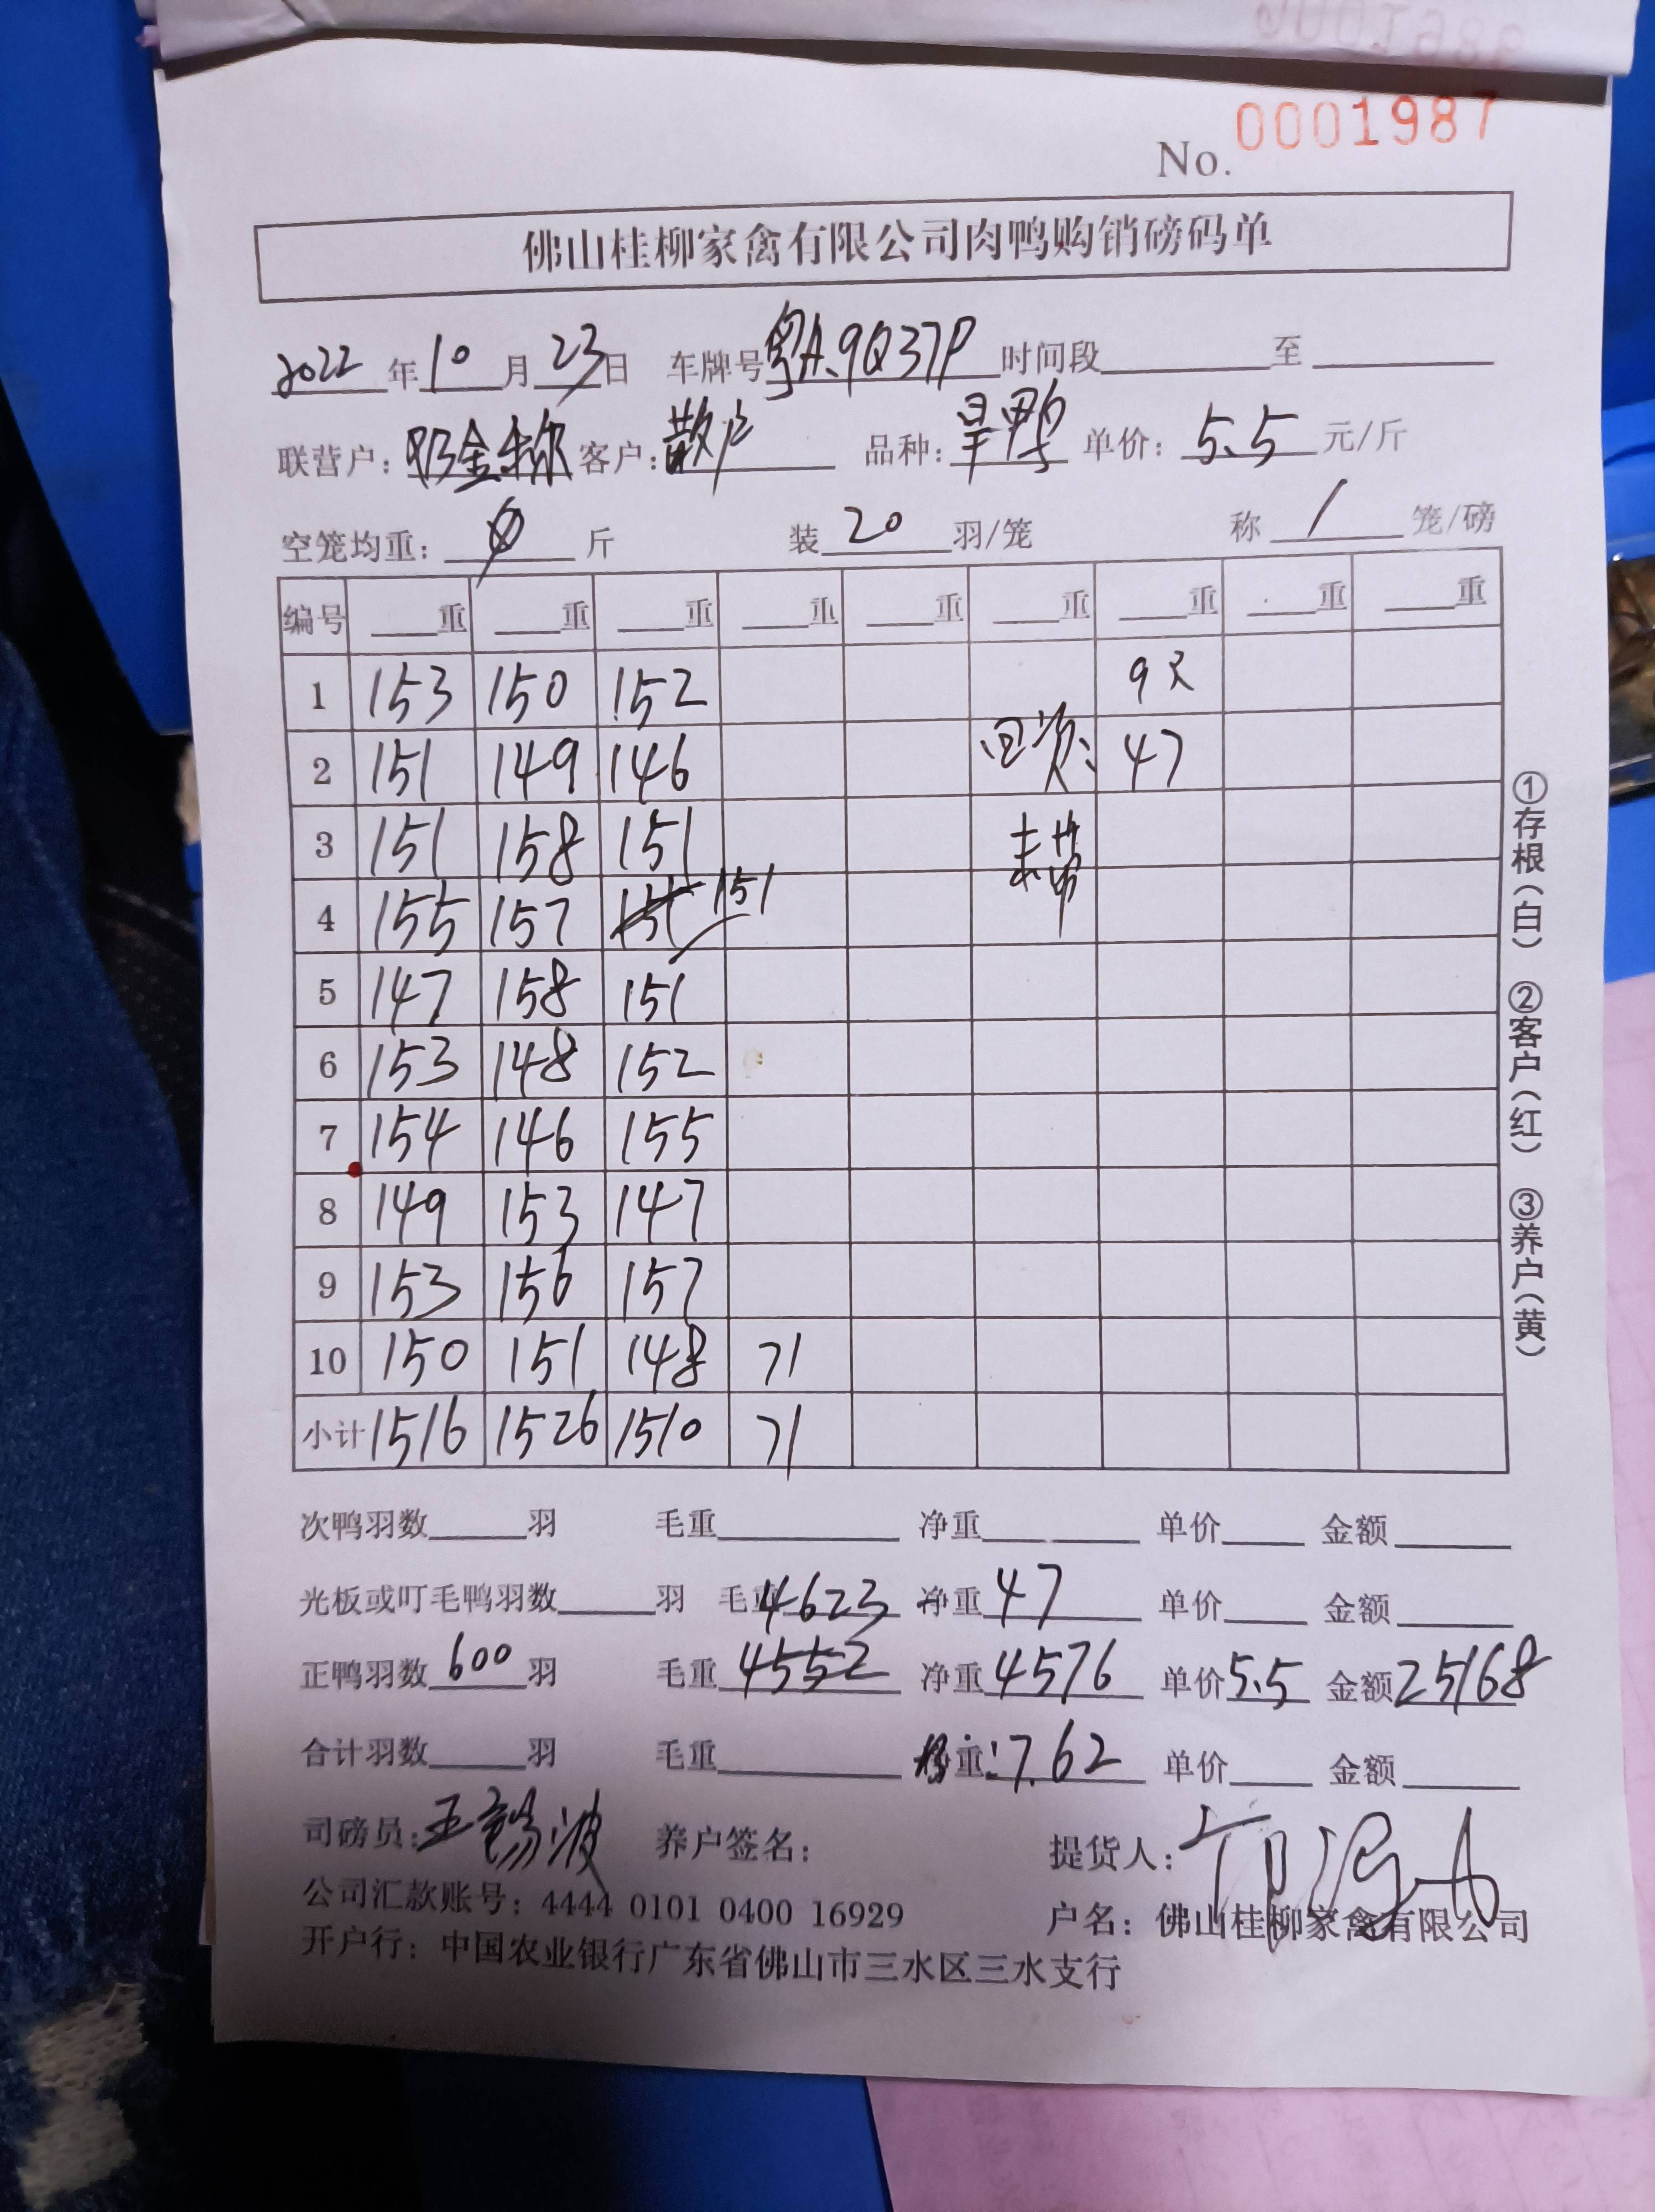 No. 0001987
佛山桂柳家禽有限公司肉鸭购销磅码单
2022年10月23日 车牌号粤A.9Q37P 时间段 至
联营户: 客户:散户 品种:旱鸭 单价:5.5元/斤
空笼均重:0斤 装20羽/笼 称1笼/磅
编号 重 重 重 重 重 重 重 重 重
1 153 150 152 9只
2 151 149 146 47
3 151 158 151
4 155 157 151
5 147 158 151
6 153 148 152
7 154 146 155
8 149 153 147
9 153 156 157
10 150 151 148 71
小计 1516 1526 1510 71
次鸭羽数 羽 毛重 净重 单价 金额
光板或叮毛鸭羽数 羽 毛重4623 净重47 单价 金额
正鸭羽数600羽 毛重4552 净重4576 单价5.5 金额25168
合计羽数 羽 毛重 重:7.62 单价 金额
司磅员: 养户签名: 提货人:
公司汇款账号:4444 0101 0400 16929 户名:佛山桂柳家禽有限公司
开户行:中国农业银行广东省佛山市三水区三水支行
①存根(白) ②客户(红) ③养户(黄)